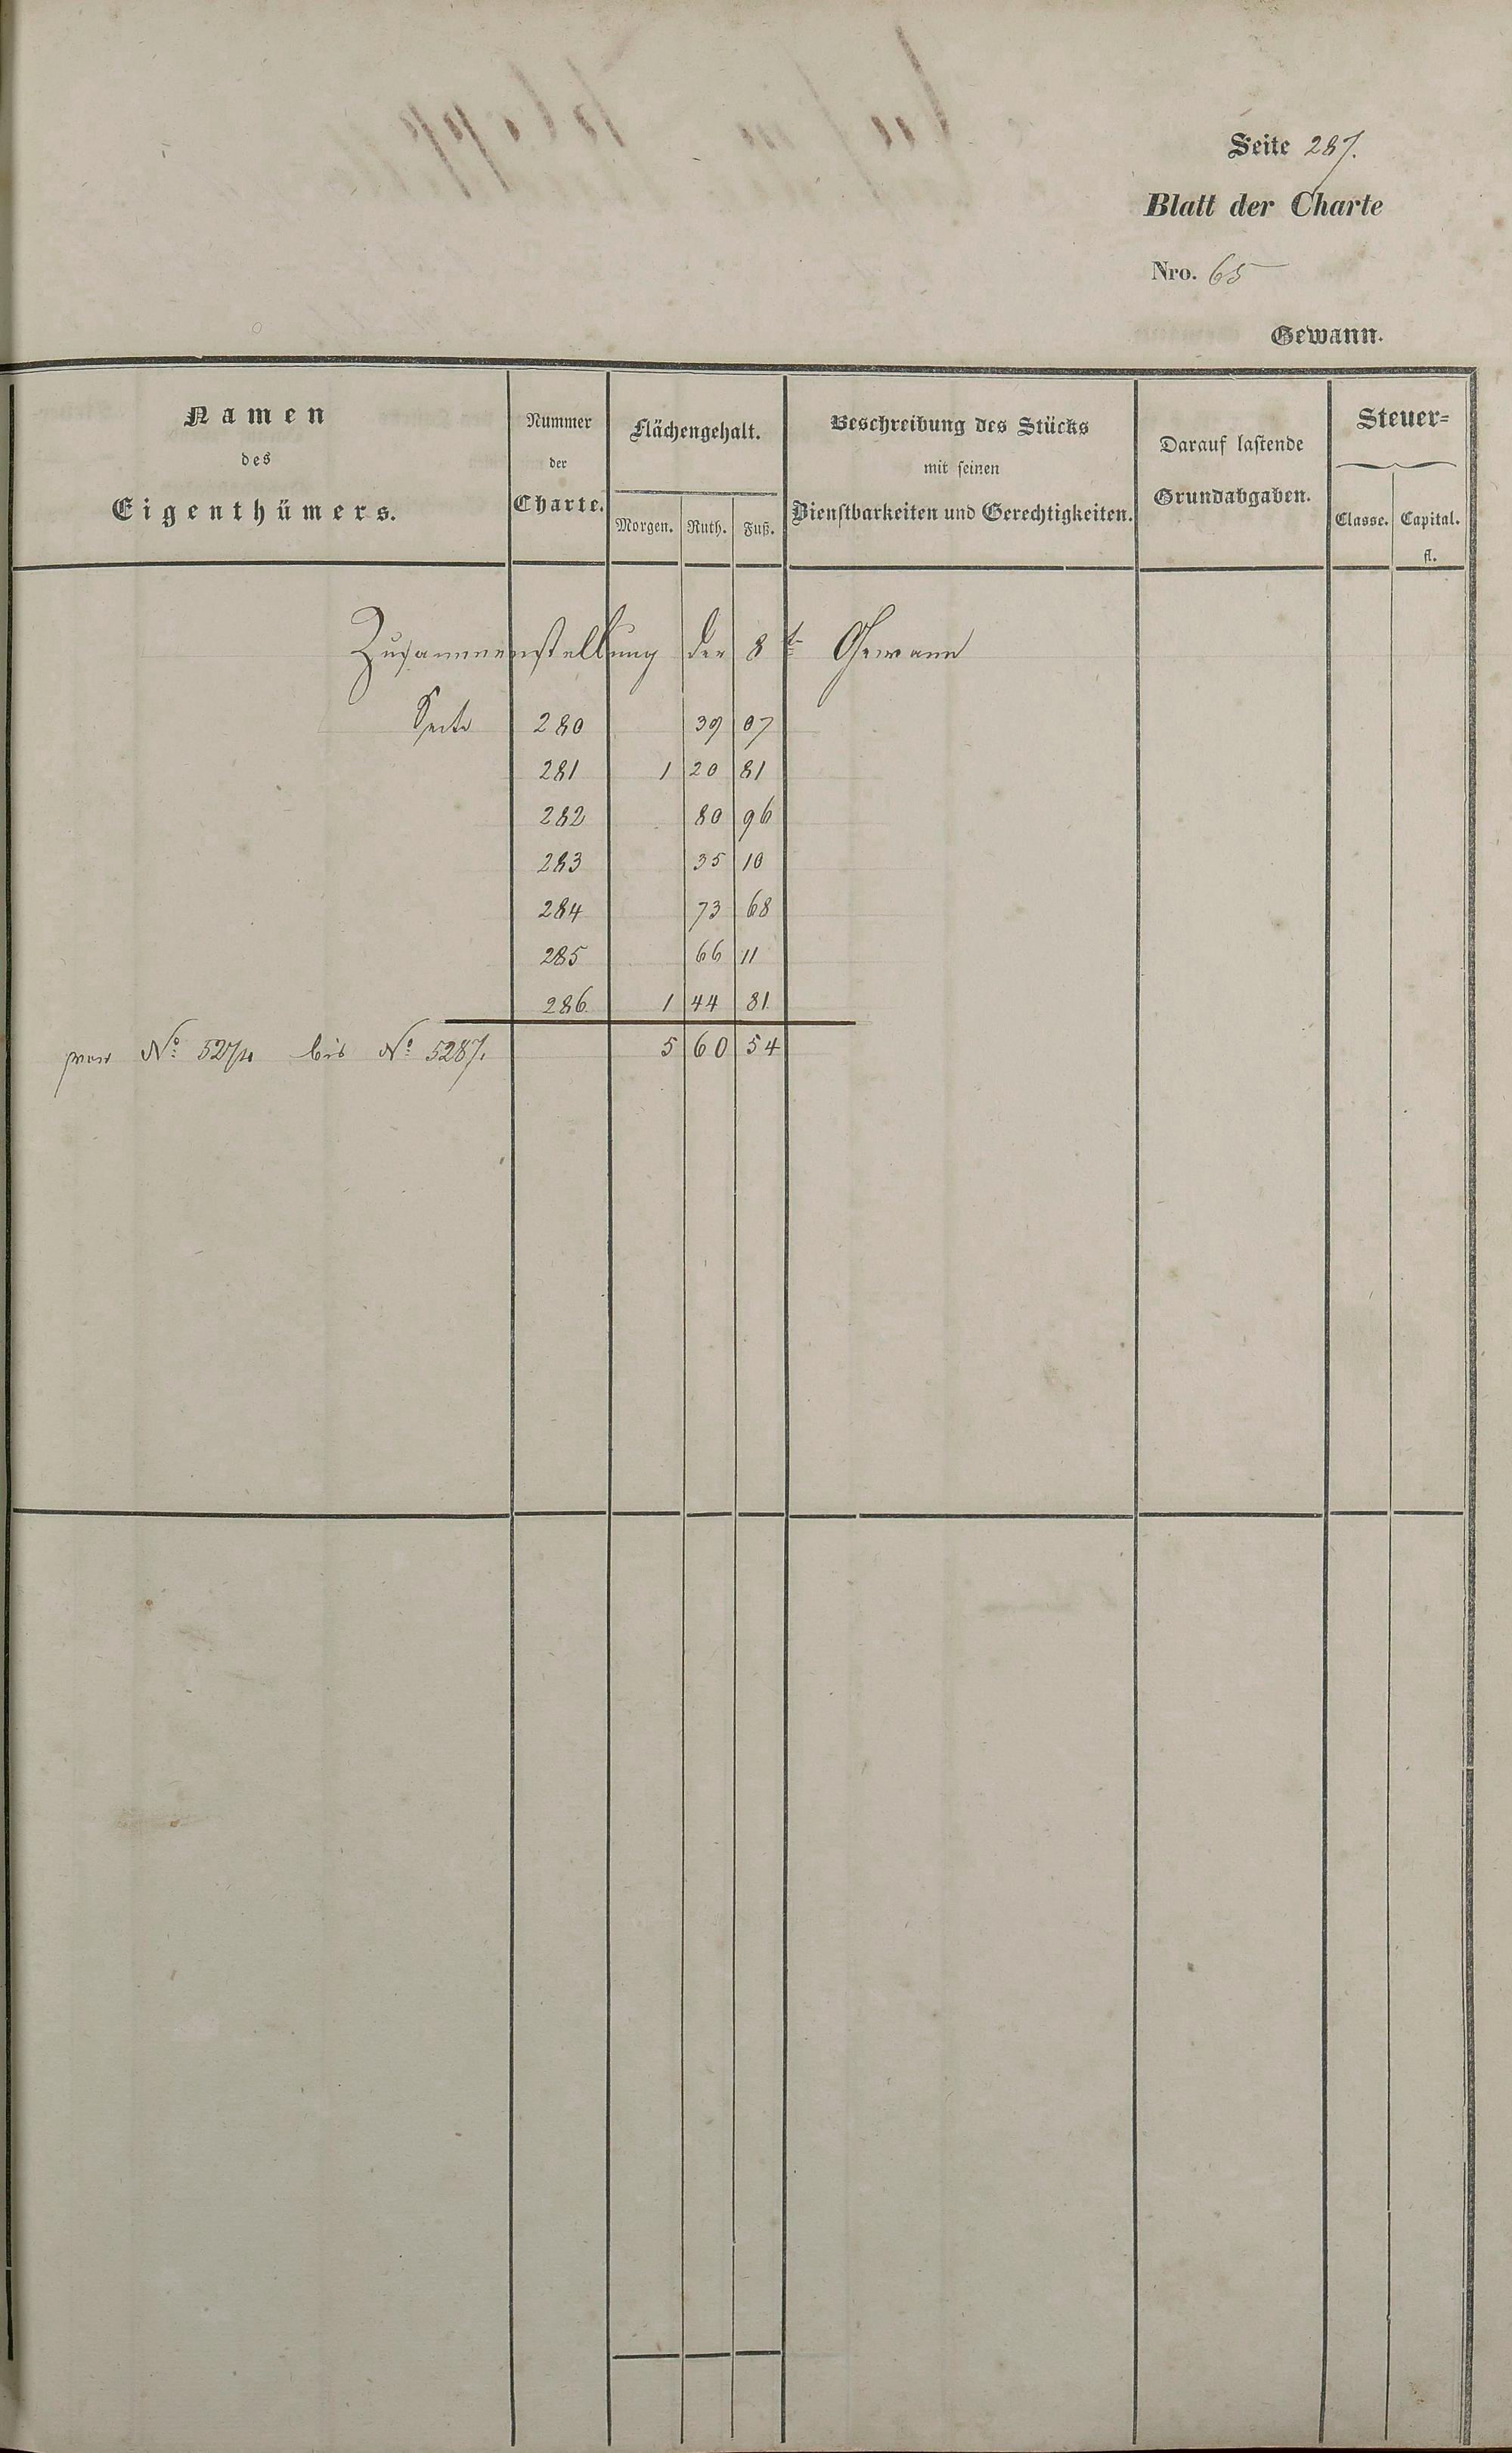 Seite 287.
Blatt der Charte
Nro. 65
Gewann.
Namen des Eigenthümers.
Nummer der Charte.
Flächengehalt.
Morgen. Ruth. Fuß.
Beschreibung des Stücks mit seinen Dienstbarkeiten und Gerechtigkeiten.
Darauf lastende Grundabgaben.
Steuer=
Classe. Capital. fl.
Zusammenstellung der 8t Gewann
Seite 280 39 07
281 1 20 81
282 80 96
283 35 10
284 73 68
285 66 11
286. 1 44 81.
von No: bis No: 5287. 5 60 54